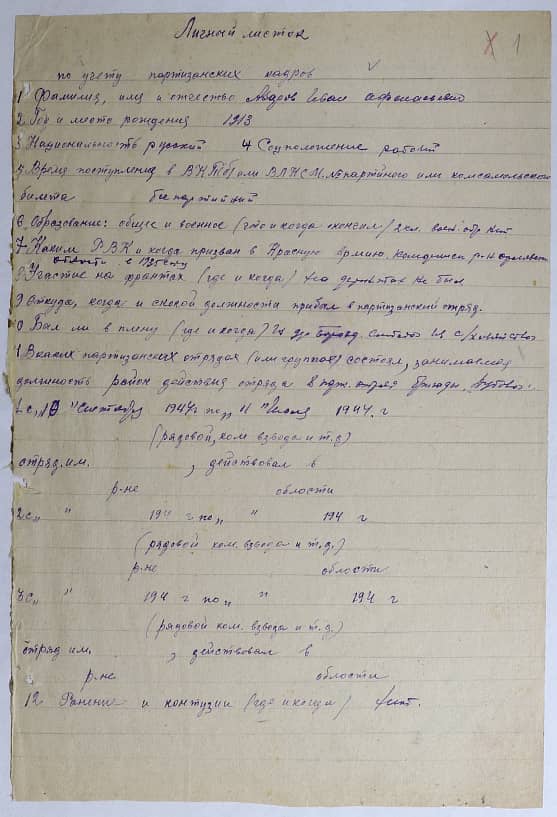 Личный листок
1
по учету партизанских кадров
1 Фамилия, имя и отчество Авдеев Иван Афанасьевич
2 Год и место рождения 1913
3 Национальность русский 4 Соцположение рабочий
5 Время поступления в ВКП(б) или ВЛКСМ, № партийного или комсомольского
билета беспартийный
6 Образование: общее и военное (что и когда окончил) 2 кл.
7 Каким РВК и когда призван в Красную армию
8 Участие на фронтах (где и когда) на не был
9 Откуда, когда и с какой должности прибыл в партизанский отряд.
0 Был ли в плену (где и когда)
1 В каких партизанских отрядах (или группах) состоял, занимаемая
должность район действия отряда
1 с „10 " сентября 1943 г. по „ 11 " июля 1944. г
(рядовой, ком. взвода и т.д)
отряд. им. , действовал в
р-не области
2 с „ " 194 г по „ " 194 г
(рядовой ком. взвода и т.д.)
р-не области
3 с „ " 194 г по „ " 194 г
(рядовой ком. взвода и т.д.)
отряд им. , действовал в
р-не области
12 Ранение и контузии (где и когда) нет.